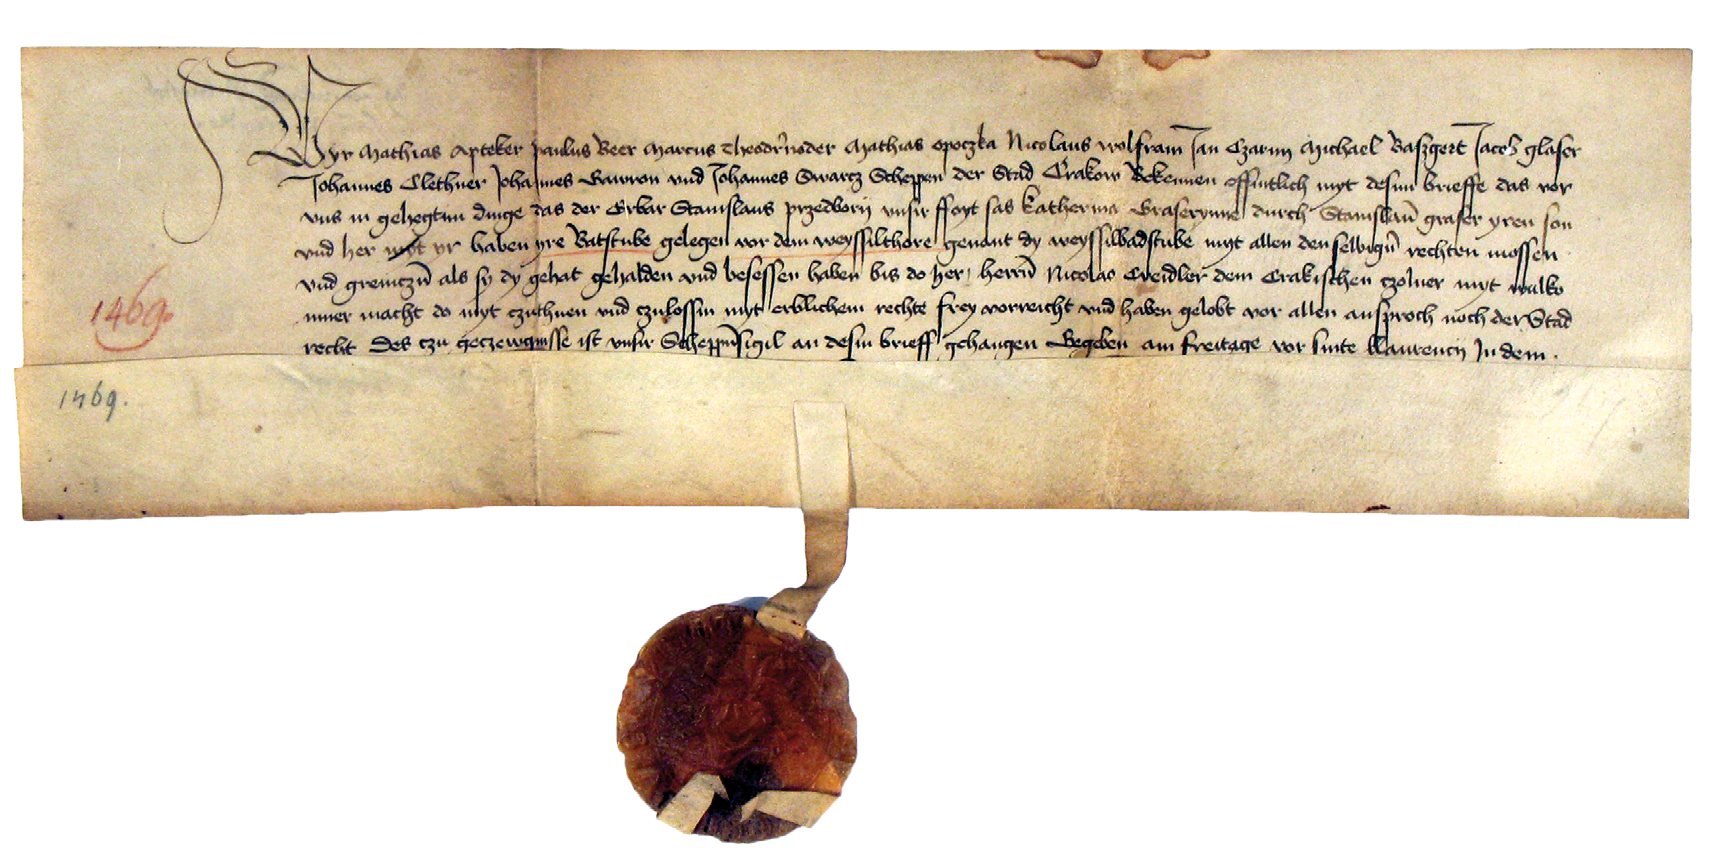 Wyr Mathias Apteker paulus Beer Marcus Mathias opoczka Nicolaus wolfram Jan Czarny Michael Jacob glaser
Johannes Clethner Johannes Gawron und Johannes Swarcz Scheppen der Stad Crakow Bekennen offintlich myt desim brieffe das vor
vns in gehegtim dinge das der Erbar Stanislaus przedborij vnsir ffoyt sas Katherina Graserynne durch graser yren son
vnd her myt yr haben yre Batstube gelegen vor dem weyssilthore genant dy weyssilbadstube myt allen rechten mossen
vnd als sy dy gehat gehalden vnd besessen haben bis do her Nicolao Creidler dem Crakischen czolner myt walko
macht do myt czuthuen vnd czulossin myt erblichem rechte frey vorreicht vnd haben gelobt vor allen ansproch noch der Stad
recht Des czu geczewgnisse ist vnsir an desin brieff gehangen Gegeben am freitage vor sinte laurencij In dem
1469.
1469.